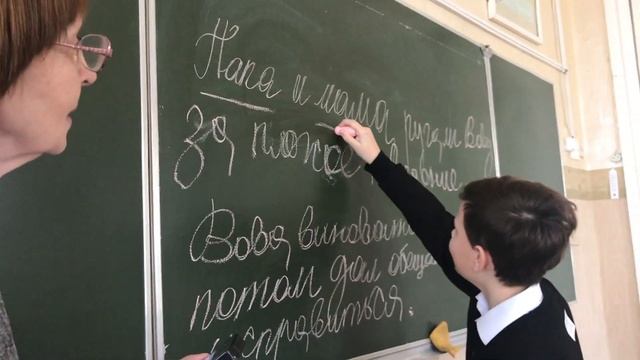 Папа и мама ругали Вову
за плохое поведение
Вова виноват
потом дал обеща
исправиться.